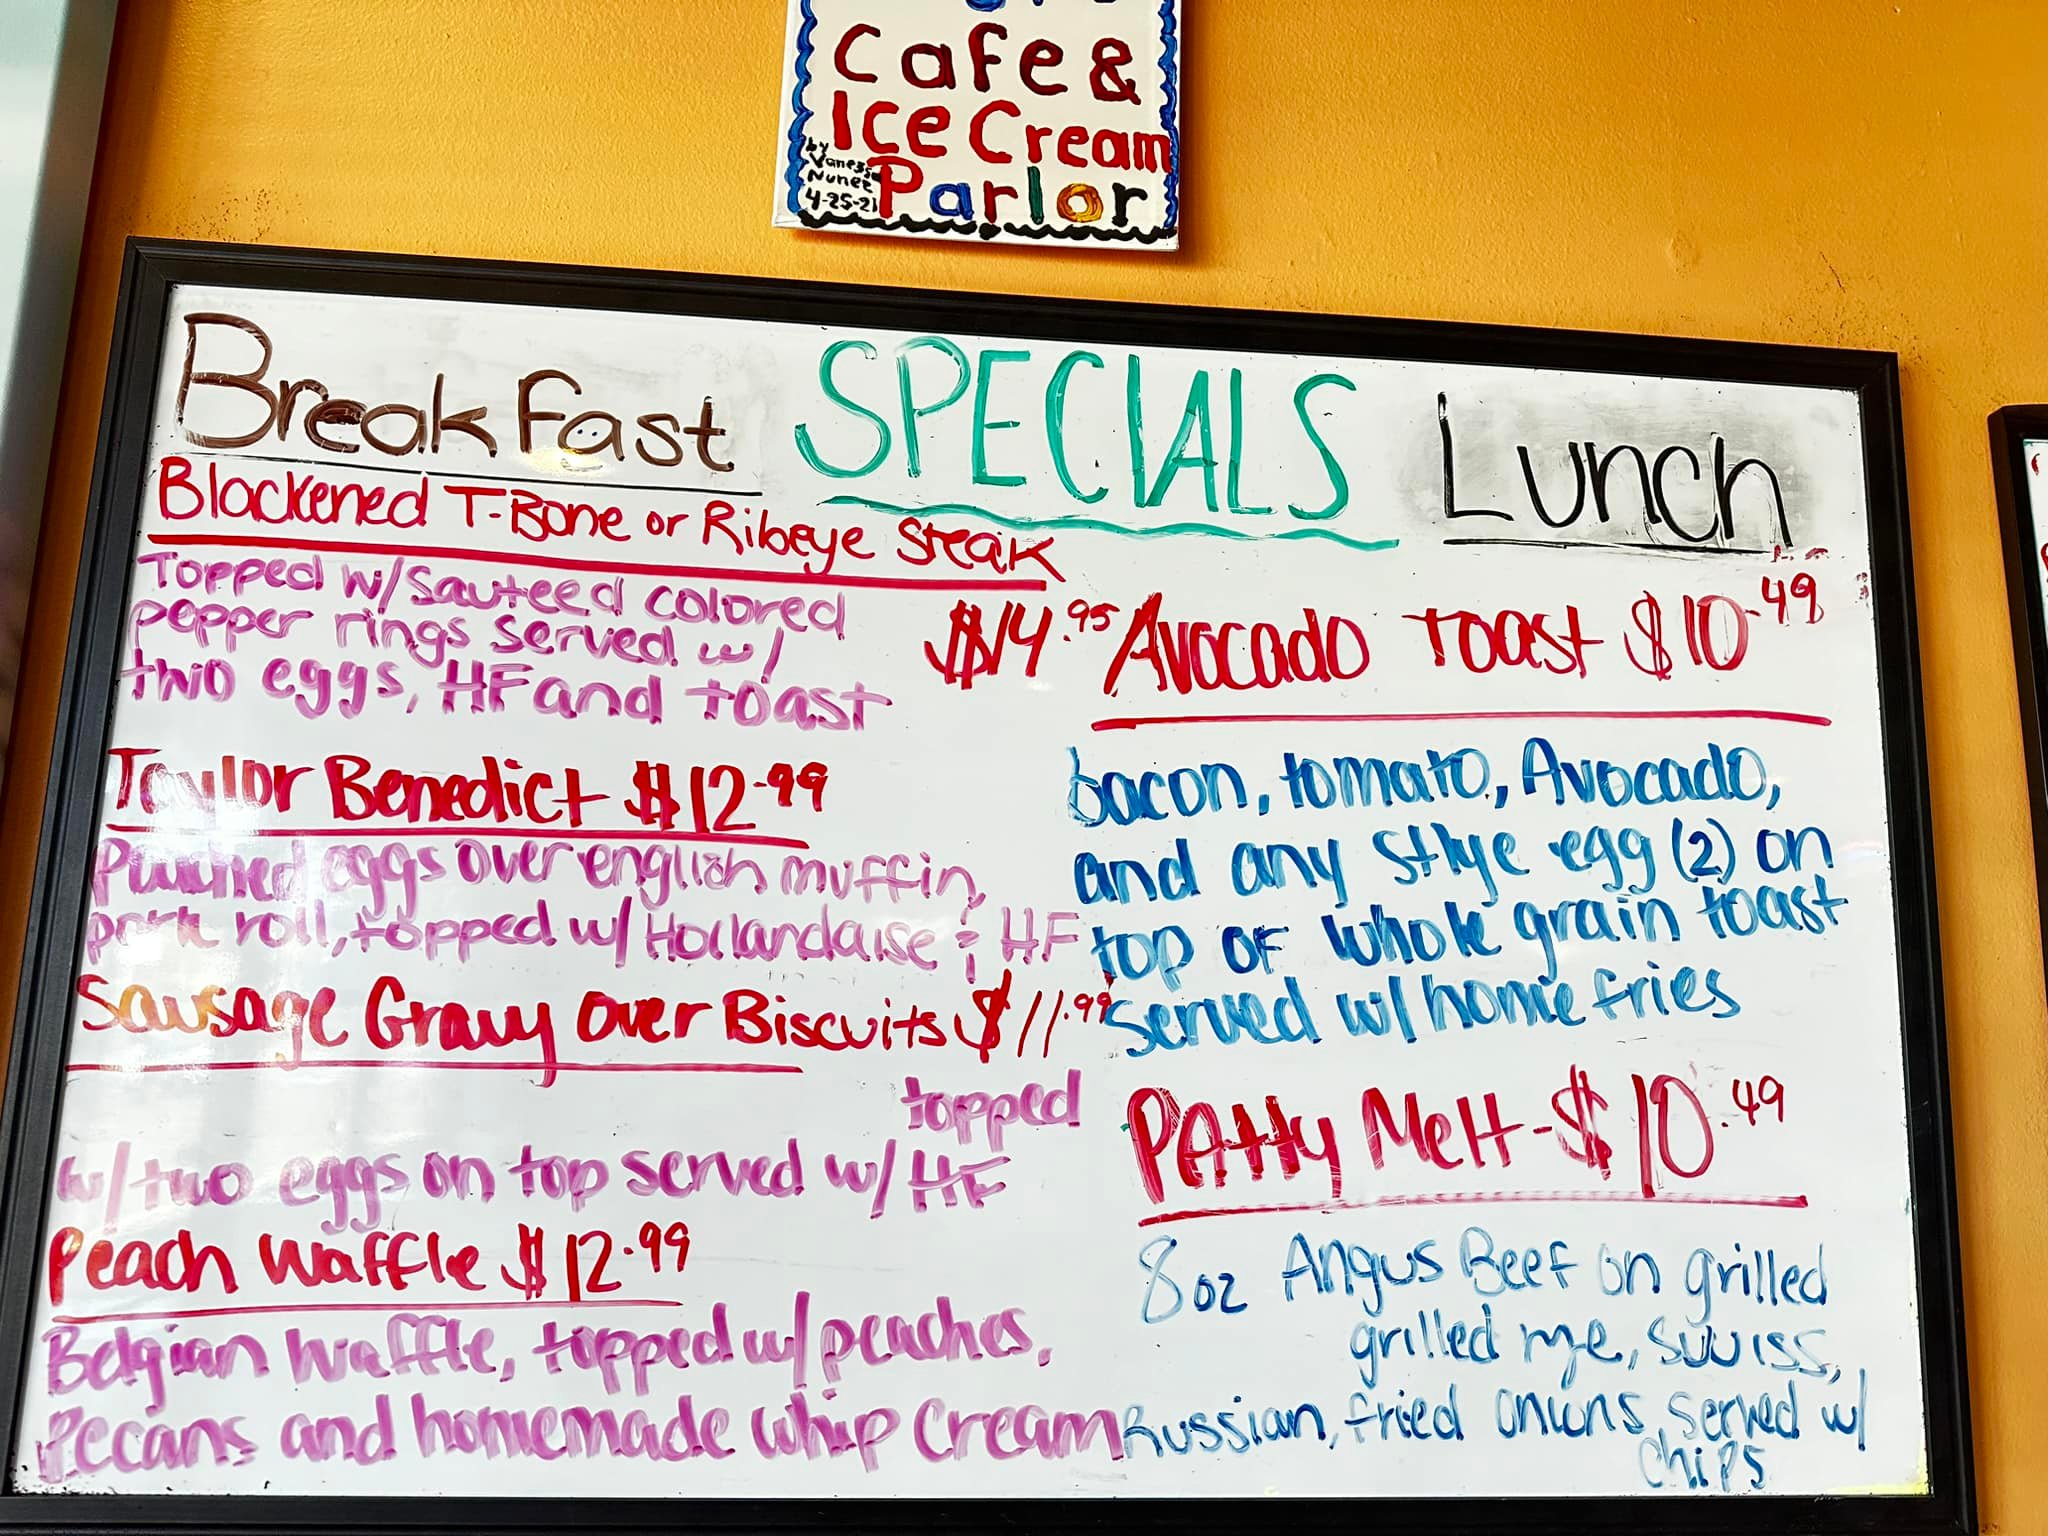 Cafe &
Ice Cream
Parlor
by
Vanessa
Nunez
4-25-21
Breakfast SPECIALS Lunch
Blackened T-Bone or Ribeye Steak
Topped w/ Sauteed colored
pepper rings served w/
two eggs, HF and toast
$14.95
Taylor Benedict $12.99
Poached eggs over english muffin,
pork roll, topped w/ Hollandaise & HF
Sausage Gravy over Biscuits $11.99
topped
w/ two eggs on top served w/ HF
Peach Waffle $12.99
Belgian Waffle, topped w/ peaches,
Pecans and homemade whip Cream
Avocado Toast $10.49
bacon, tomato, Avocado,
and any stlye egg (2) on
top of whole grain toast
served w/ home fries
PAtty Melt - $10.49
8oz Angus Beef on grilled
grilled rye, swiss,
Russian, fried onions, served w/
chips